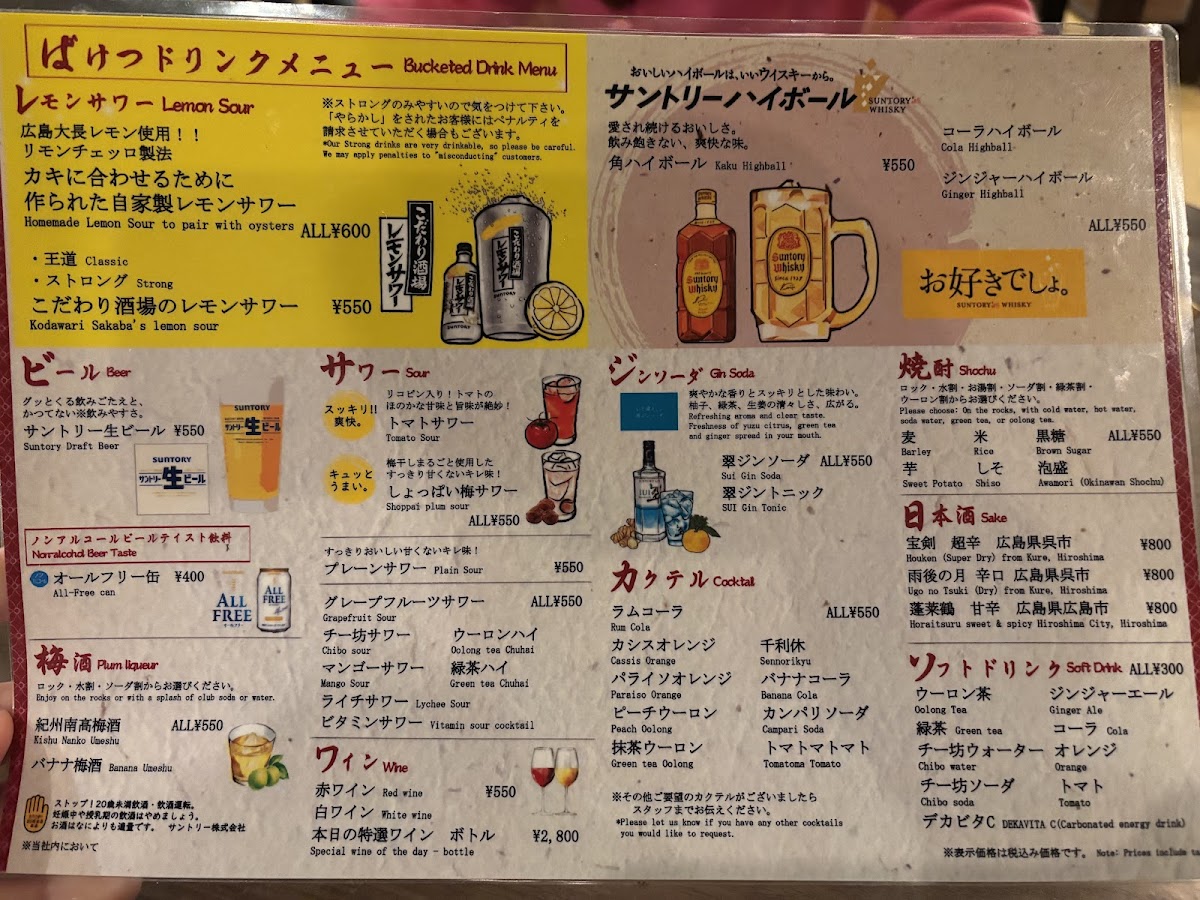 ばけつドリンクメニュー Bucketed Drink Menu
レモンサワー Lemon Sour
広島大長レモン使用！！
リモンチェッロ製法
カキに合わせるために
作られた自家製レモンサワー
Homemade Lemon Sour to pair with oysters ALL¥600
・王道 Classic
・ストロング Strong
こだわり酒場のレモンサワー ¥550
Kodawari Sakaba's lemon sour
※ストロングのみやすいので気をつけて下さい。
「やらかし」をされたお客様にはペナルティを
請求させていただく場合もございます。
*Our Strong drinks are very drinkable, so please be careful.
We may apply penalties to "misconducting" customers.
こだわり酒場
レモンサワー
こだわり酒場
レモンサワー
SUNTORY
おいしいハイボールは、いいウイスキーから。
サントリーハイボール
SUNTORY WHISKY
愛され続けるおいしさ。
飲み飽きない、爽快な味。
角ハイボール Kaku Highball ¥550
コーラハイボール
Cola Highball
ジンジャーハイボール
Ginger Highball
ALL¥550
Suntory Whisky
Suntory Whisky
SINCE 1937
お好きでしょ。
SUNTORY WHISKY
ビール Beer
グッとくる飲みごたえと、
かつてない※飲みやすさ。
サントリー生ビール ¥550
Suntory Draft Beer
SUNTORY
サントリー生ビール
SUNTORY
サントリー生ビール
ノンアルコールビールテイスト飲料
Non-alcohol Beer Taste
オールフリー缶 ¥400
All-Free can
ALL FREE
オールフリー
ALL FREE
梅酒 Plum liqueur
ロック・水割・ソーダ割からお選びください。
Enjoy on the rocks or with a splash of club soda or water.
紀州南高梅酒 ALL¥550
Kishu Nanko Umeshu
バナナ梅酒 Banana Umeshu
ストップ！20歳未満飲酒・飲酒運転。
妊娠中や授乳期の飲酒はやめましょう。
お酒はなによりも適量です。 サントリー株式会社
※当社内において
サワー Sour
スッキリ!!
爽快。
リコピン入り！トマトの
ほのかな甘味と旨味が絶妙！
トマトサワー
Tomato Sour
キュッと
うまい。
梅干しまるごと使用した
すっきり甘くないキレ味！
しょっぱい梅サワー
Shoppai plum sour
ALL¥550
すっきりおいしい甘くないキレ味！
プレーンサワー Plain Sour ¥550
グレープフルーツサワー ALL¥550
Grapefruit Sour
チー坊サワー ウーロンハイ
Chibo sour Oolong tea Chuhai
マンゴーサワー 緑茶ハイ
Mango Sour Green tea Chuhai
ライチサワー Lychee Sour
ビタミンサワー Vitamin sour cocktail
ワイン Wine
赤ワイン Red wine ¥550
白ワイン White wine
本日の特選ワイン ボトル ¥2,800
Special wine of the day - bottle
ジンソーダ Gin Soda
爽やかな香りとスッキリとした味わい。
柚子、緑茶、生姜の清々しさ、広がる。
Refreshing aroma and clear taste.
Freshness of yuzu citrus, green tea
and ginger spread in your mouth.
翠ジンソーダ ALL¥550
Sui Gin Soda
翠ジントニック
SUI Gin Tonic
SUI
カクテル Cocktail
ラムコーラ ALL¥550
Rum Cola
カシスオレンジ 千利休
Cassis Orange Sennorikyu
パライソオレンジ バナナコーラ
Paraiso Orange Banana Cola
ピーチウーロン カンパリソーダ
Peach Oolong Campari Soda
抹茶ウーロン トマトマトマト
Green tea Oolong Tomatoma Tomato
※その他ご要望のカクテルがございましたら
スタッフまでお伝えください。
*Please let us know if you have any other cocktails
you would like to request.
焼酎 Shochu
ロック・水割・お湯割・ソーダ割・緑茶割・
ウーロン割からお選びください。
Please choose: On the rocks, with cold water, hot water,
soda water, green tea, or oolong tea.
麦 米 黒糖 ALL¥550
Barley Rice Brown Sugar
芋 しそ 泡盛
Sweet Potato Shiso Awamori (Okinawan Shochu)
日本酒 Sake
宝剣 超辛 広島県呉市 ¥800
Houken (Super Dry) from Kure, Hiroshima
雨後の月 辛口 広島県呉市 ¥800
Ugo no Tsuki (Dry) from Kure, Hiroshima
蓬莱鶴 甘辛 広島県広島市 ¥800
Horaitsuru sweet & spicy Hiroshima City, Hiroshima
ソフトドリンク Soft Drink ALL¥300
ウーロン茶 ジンジャーエール
Oolong Tea Ginger Ale
緑茶 Green tea コーラ Cola
チー坊ウォーター オレンジ
Chibo water Orange
チー坊ソーダ トマト
Chibo soda Tomato
デカビタC DEKAVITA C(Carbonated energy drink)
※表示価格は税込み価格です。 Note: Prices include ta